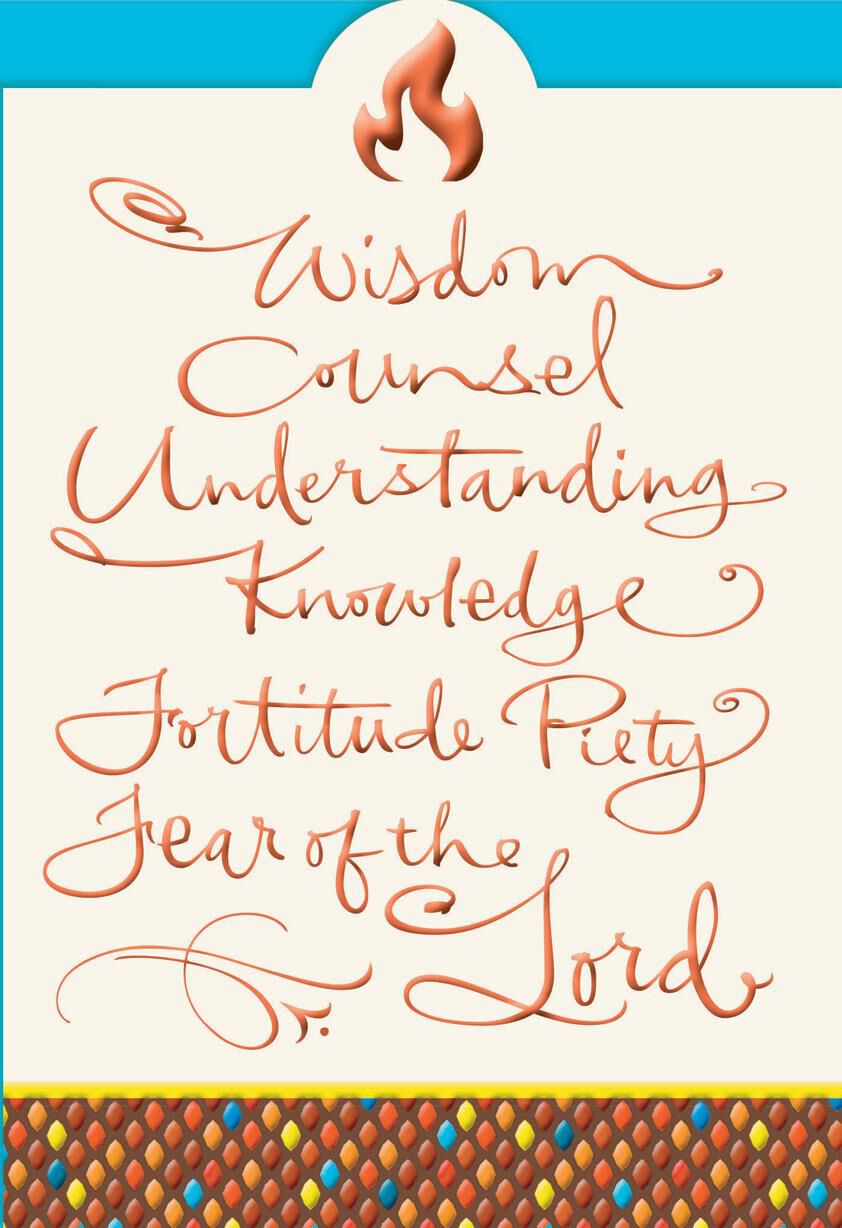 Wisdom
Counsel
Understanding
Knowledge
Fortitude Piety
Fear of the
Lord